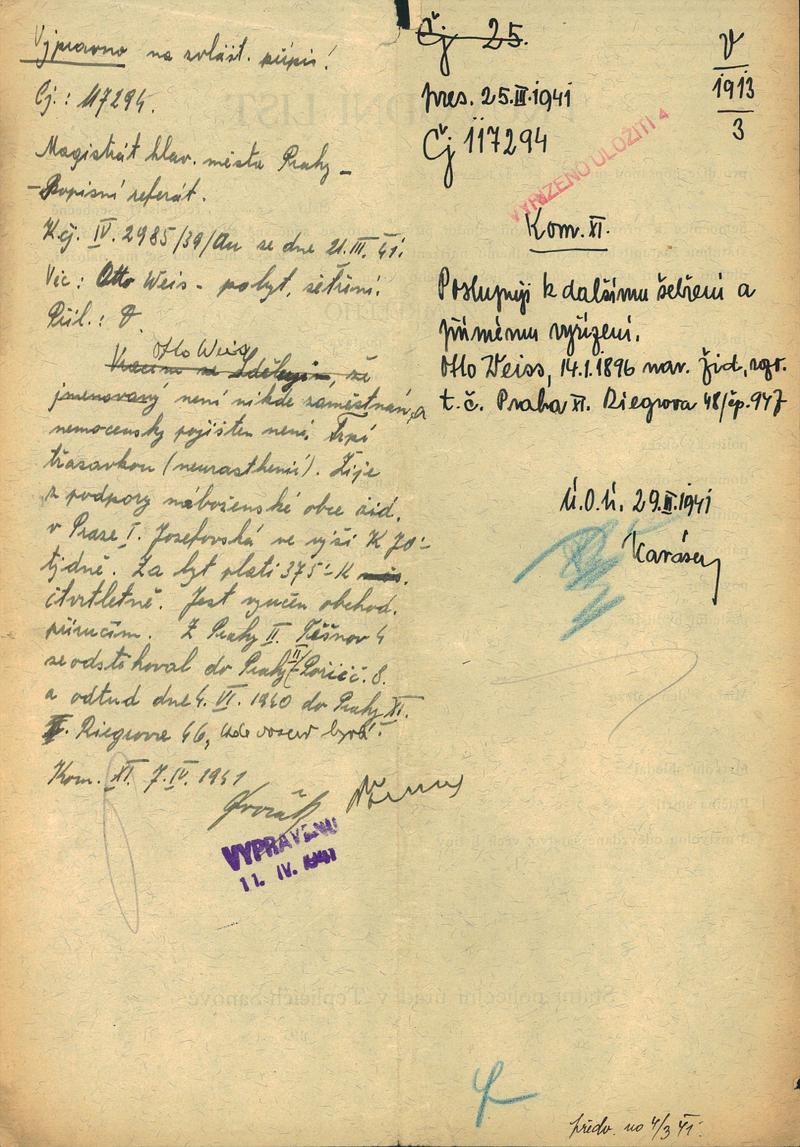 Vypraveno na zvlášt. přípis!
Čj.: 117294.
Magistrát hlav. města Prahy –
– Popisní referát.
K čj. IV. 2985/39/Au ze dne 21.III.41.
Věc: Otto Weis – pobyt, šetření.
Příl.: 0.
Otto Weis
Vracím se sdělením, že
jmenovaný není nikde zaměstnán, a
nemocensky pojištěn není. Trpí
třasavkou (neurasthenií). Žije
z podpory náboženské obce žid.
v Praze I. Josefovská ve výši K 70'-
týdně. Za byt platí 375'- K
čtvrtletně. Jest vyučen obchod.
příručím. Z Prahy II. Těšnov 4
se odstěhoval do Prahy II Poříč č. 8.
a odtud dne 4. VI. 1940 do Prahy XI.
Riegrova 46, kde dosud bydlí.
Kom. XI. 7.IV.1941
Dvořák
VYPRAVENO
11. IV. 1941
Čj 25.
pres. 25.III.1941
Čj 117294
V
1913
3
VYŘÍZENO ULOŽITI 4
Kom. XI.
Postupuji k dalšímu šetření a
přímému vyřízení.
Otto Weiss, 14.1.1896 nar. žid,
t.č. Praha XI. Riegrova 48/čp. 947
Ú.O.Ú. 29.III.1941
Karásek
předv. na 4/3 41.